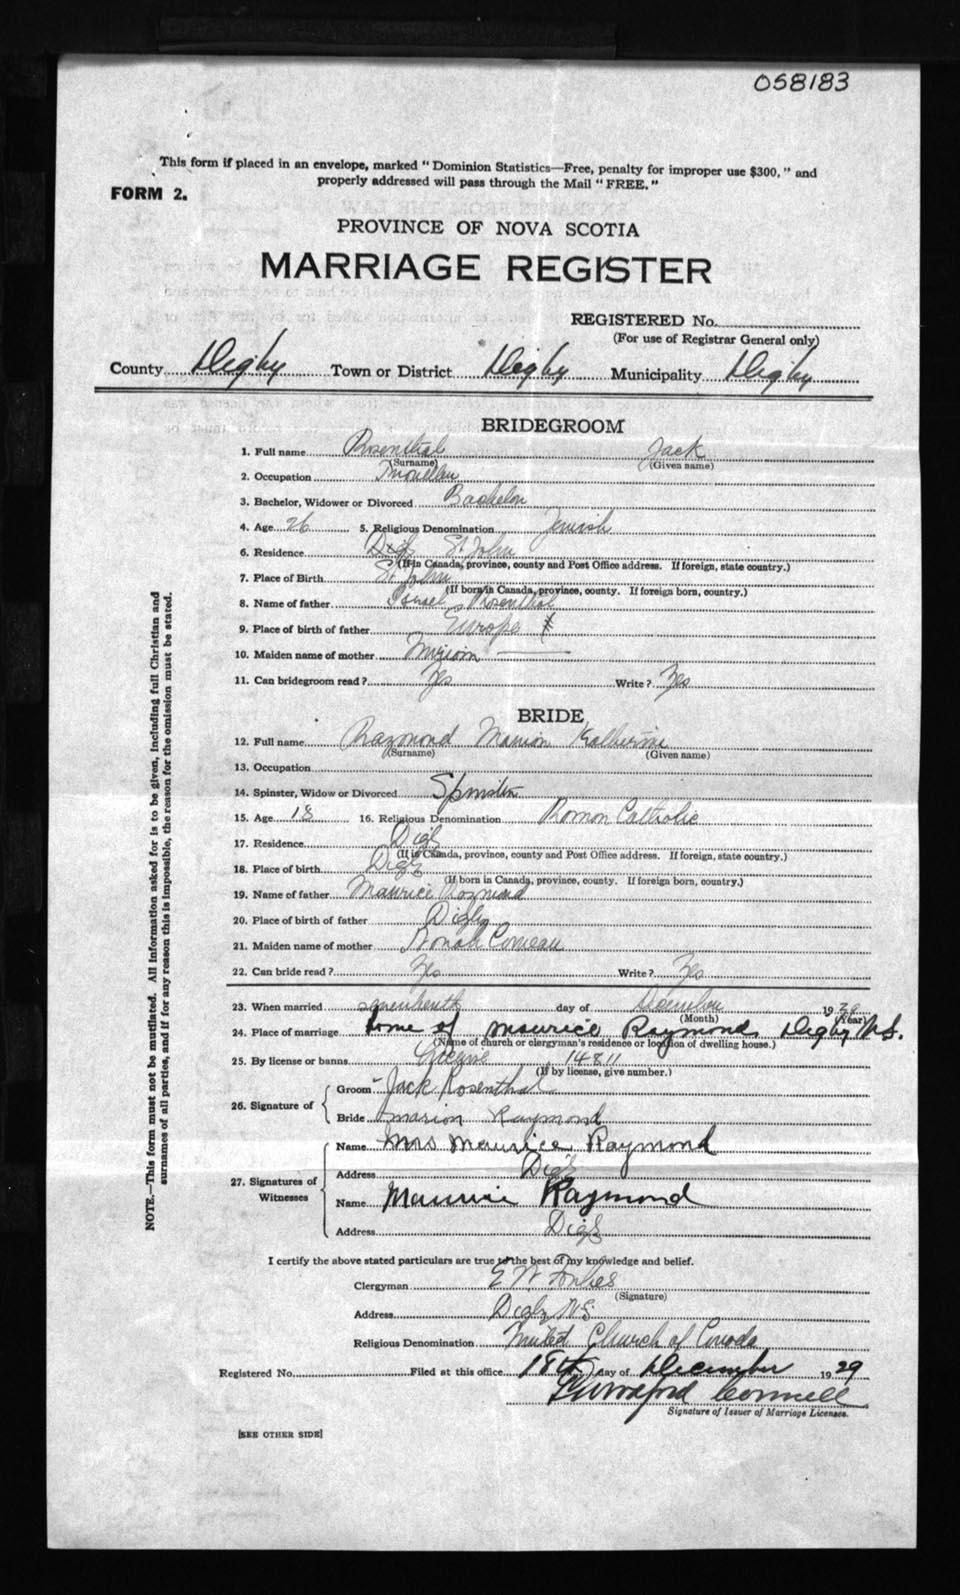 058183
This form if placed in an envelope, marked " Dominion Statistics—Free, penalty for improper use $300, " and
properly addressed will pass through the Mail " FREE. "
FORM 2.
PROVINCE OF NOVA SCOTIA
MARRIAGE REGISTER
REGISTERED No.
(For use of Registrar General only)
County Digby Town or District Digby Municipality Digby
BRIDEGROOM
1. Full name Rosenthal Jack
(Surname) (Given name)
2. Occupation Traveller
3. Bachelor, Widower or Divorced Bachelor
4. Age 26 5. Religious Denomination Jewish
6. Residence St John
(If in Canada, province, county and Post Office address. If foreign, state country.)
7. Place of Birth St John
(If born in Canada, province, county. If foreign born, country.)
8. Name of father Israel Rosenthal
9. Place of birth of father Europe
10. Maiden name of mother
11. Can bridegroom read ? Yes Write ? Yes
BRIDE
12. Full name Raymond Marion Katherine
(Surname) (Given name)
13. Occupation
14. Spinster, Widow or Divorced Spinster
15. Age 18 16. Religious Denomination Roman Catholic
17. Residence Digby
(If in Canada, province, county and Post Office address. If foreign, state country.)
18. Place of birth Digby
(If born in Canada, province, county. If foreign born, country.)
19. Name of father Maurice Raymond
20. Place of birth of father Digby
21. Maiden name of mother Comeau
22. Can bride read ? Yes Write ? Yes
23. When married seventeenth day of December 1929
(Month) (Year)
24. Place of marriage home of Maurice Raymond Digby N.S.
(Name of church or clergyman's residence or location of dwelling house.)
25. By license or banns License 14811
(If by license, give number.)
26. Signature of
Groom Jack Rosenthal
Bride Marion Raymond
27. Signatures of Witnesses
Name Mrs Maurice Raymond
Address Digby
Name Maurice Raymond
Address Digby
I certify the above stated particulars are true to the best of my knowledge and belief.
Clergyman E W Forbes
(Signature)
Address Digby N.S.
Religious Denomination United Church of Canada
Registered No. Filed at this office 18th day of December 1929
Signature of Issuer of Marriage Licenses.
[SEE OTHER SIDE]
NOTE.—This form must not be mutilated. All information asked for is to be given, including full Christian and
surnames of all parties, and if for any reason this is impossible, the reason for the omission must be stated.